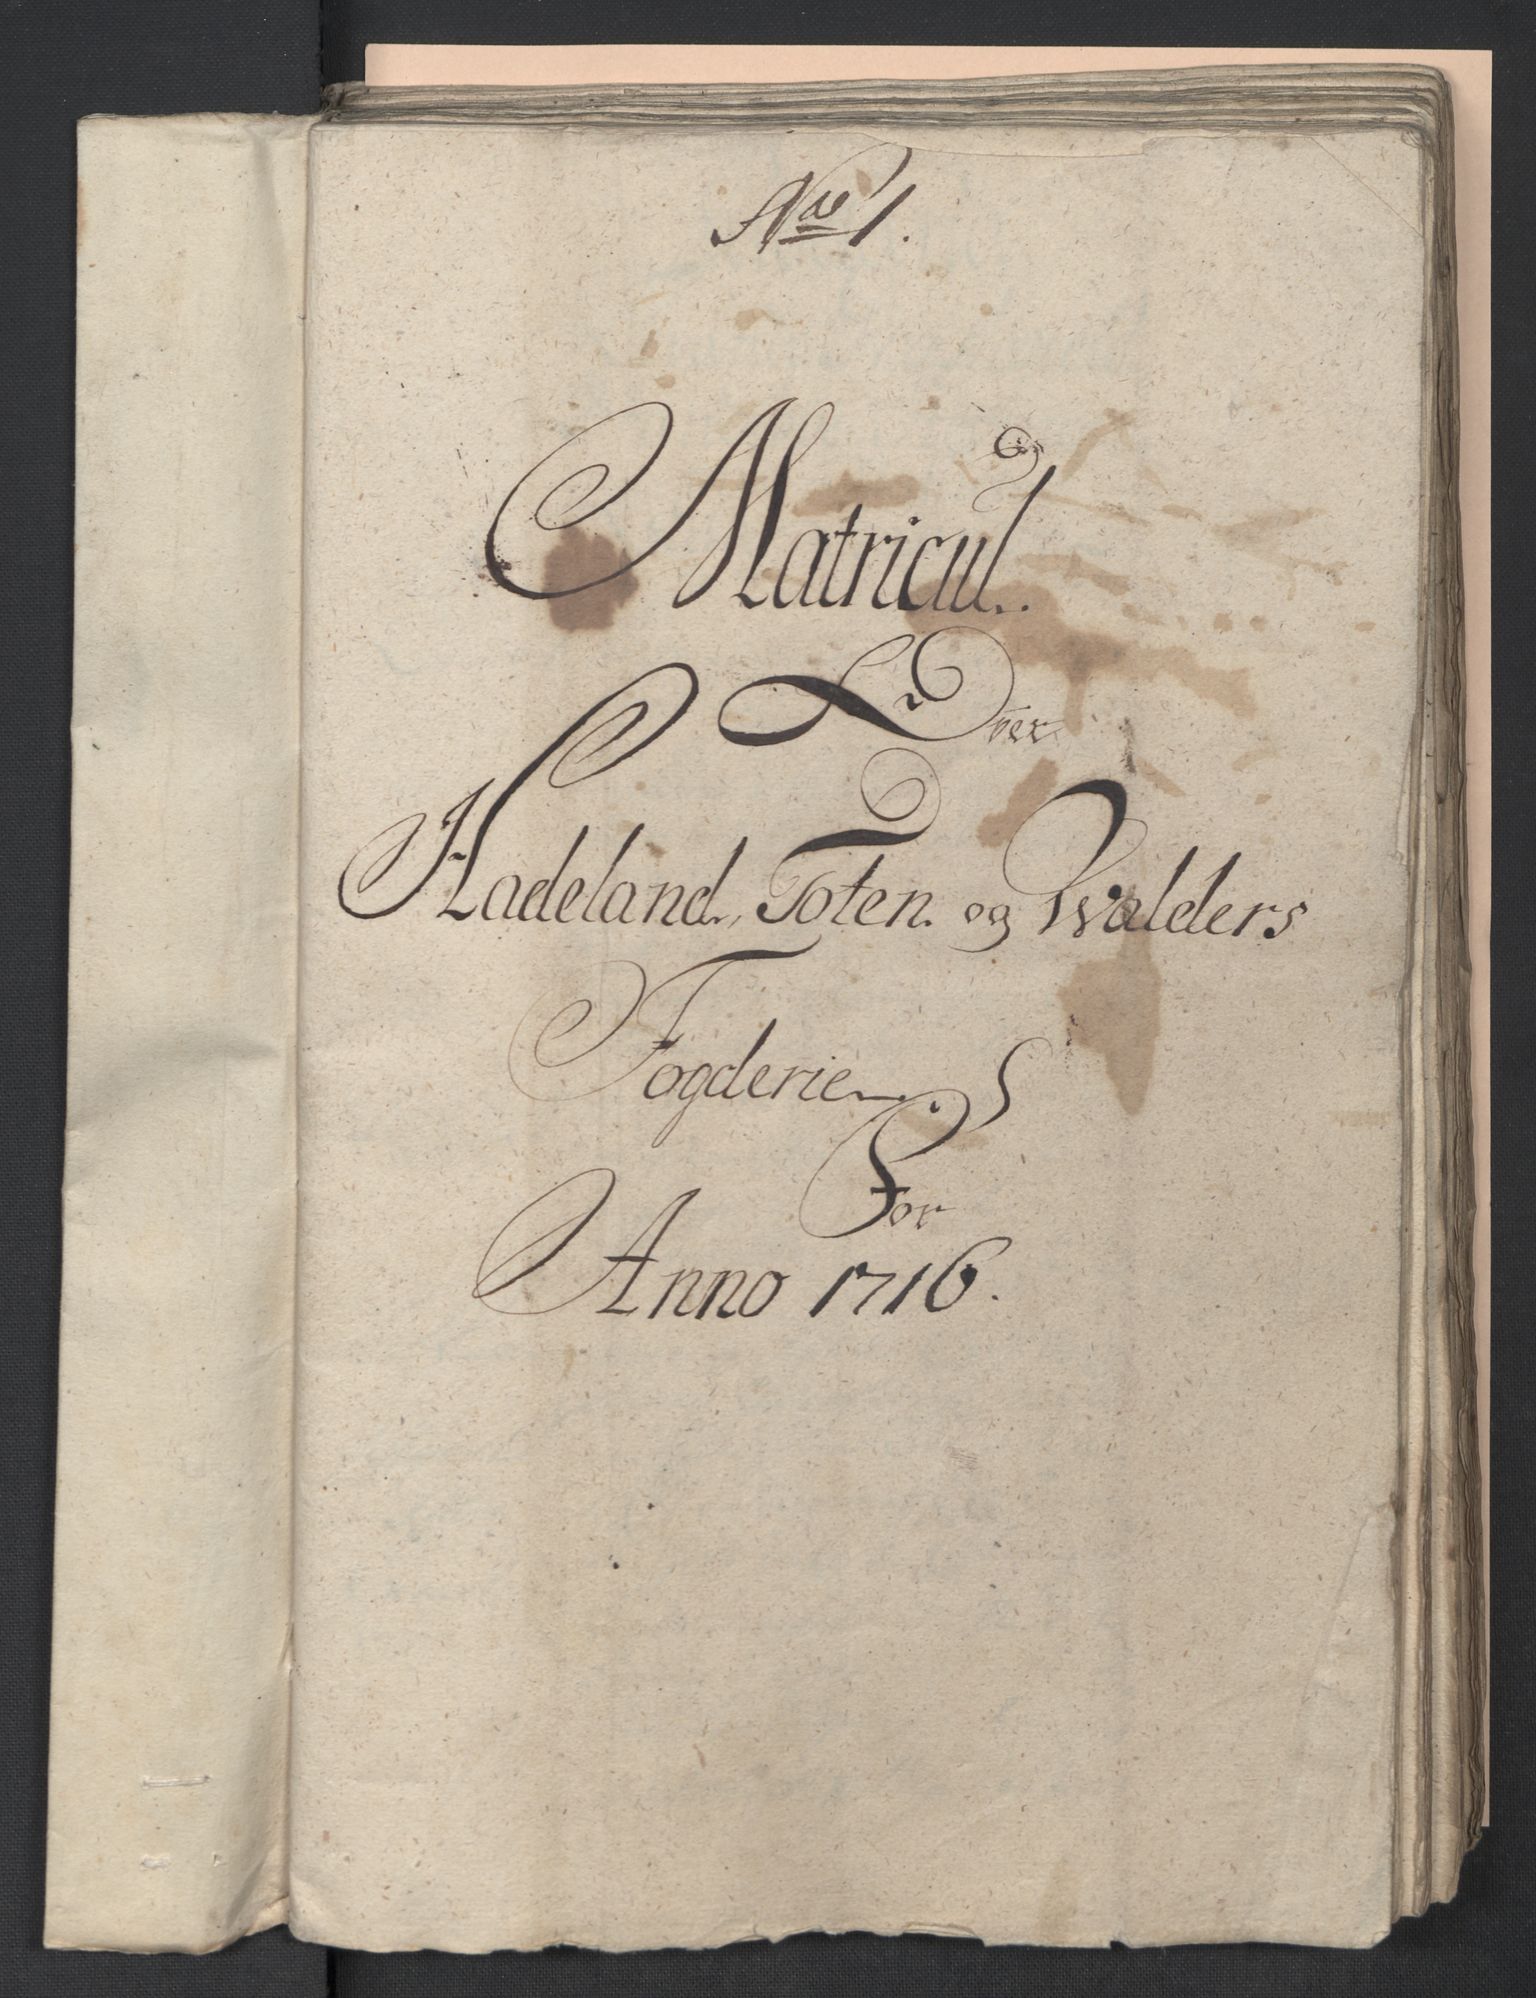 No 1.
Matricul.
Over
Hadeland, Toten og Walders
Fogderie
For
Anno 1716.